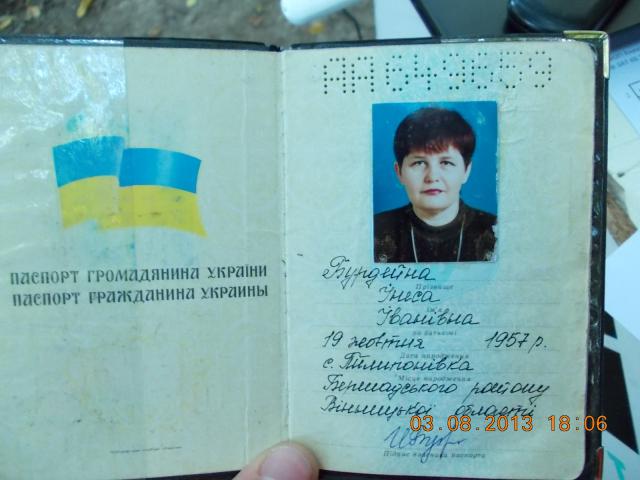 ПАСПОРТ ГРОМАДЯНИНА УКРАЇНИ
ПАСПОРТ ГРАЖДАНИНА УКРАИНЫ
АА649659
Бурдейна
Прізвище
Інеса
Іванівна
по батькові
19 жовтня 1957 р.
Дата народження
с. Пилипонівка
Місце народження
Бершадського району
Вінницької області
Підпис власника паспорта
03.08.2013 18:06